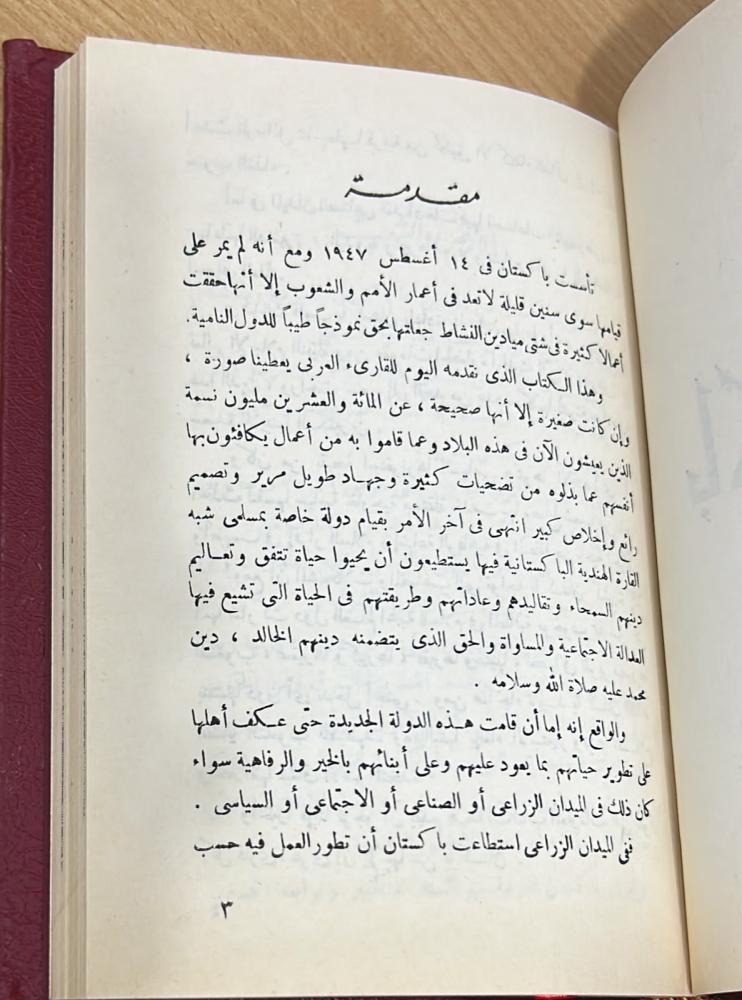 مقدمة
تأسست باكستان فى ١٤ أغسطس ١٩٤٧ ومع أنه لم يمر على
قيامها سوى سنين قليلة لا تعد فى أعمار الأمم والشعوب إلا أنها حققت
أعمالا كثيرة فى شتى ميادين النشاط جعلتها بحق نموذجاً طيباً للدول النامية.
وهذا الكتاب الذى نقدمه اليوم للقارىء العربى يعطينا صورة ،
وإن كانت صغيرة إلا أنها صحيحة ، عن المائة والعشرين مليون نسمة
الذين يعيشون الآن فى هذه البلاد وعما قاموا به من أعمال يكافئون بها
أنفسهم عما بذلوه من تضحيات كثيرة وجهاد طويل مرير وتصميم
رائع وإخلاص كبير انتهى فى آخر الأمر بقيام دولة خاصة بمسلمى شبه
القارة الهندية الباكستانية فيها يستطيعون أن يحيوا حياة تتفق وتعاليم
دينهم السمحاء وتقاليدهم وعاداتهم وطريقتهم فى الحياة التى تشيع فيها
العدالة الاجتماعية والمساواة والحق الذى يتضمنه دينهم الخالد ، دين
محمد عليه صلاة الله وسلامه .
والواقع إنه إما أن قامت هذه الدولة الجديدة حتى عكف أهلها
على تطوير حياتهم بما يعود عليهم وعلى أبنائهم بالخير والرفاهية سواء
كان ذلك فى الميدان الزراعى أو الصناعى أو الاجتماعى أو السياسى .
ففى الميدان الزراعى استطاعت باكستان أن تطور العمل فيه حسب
٣